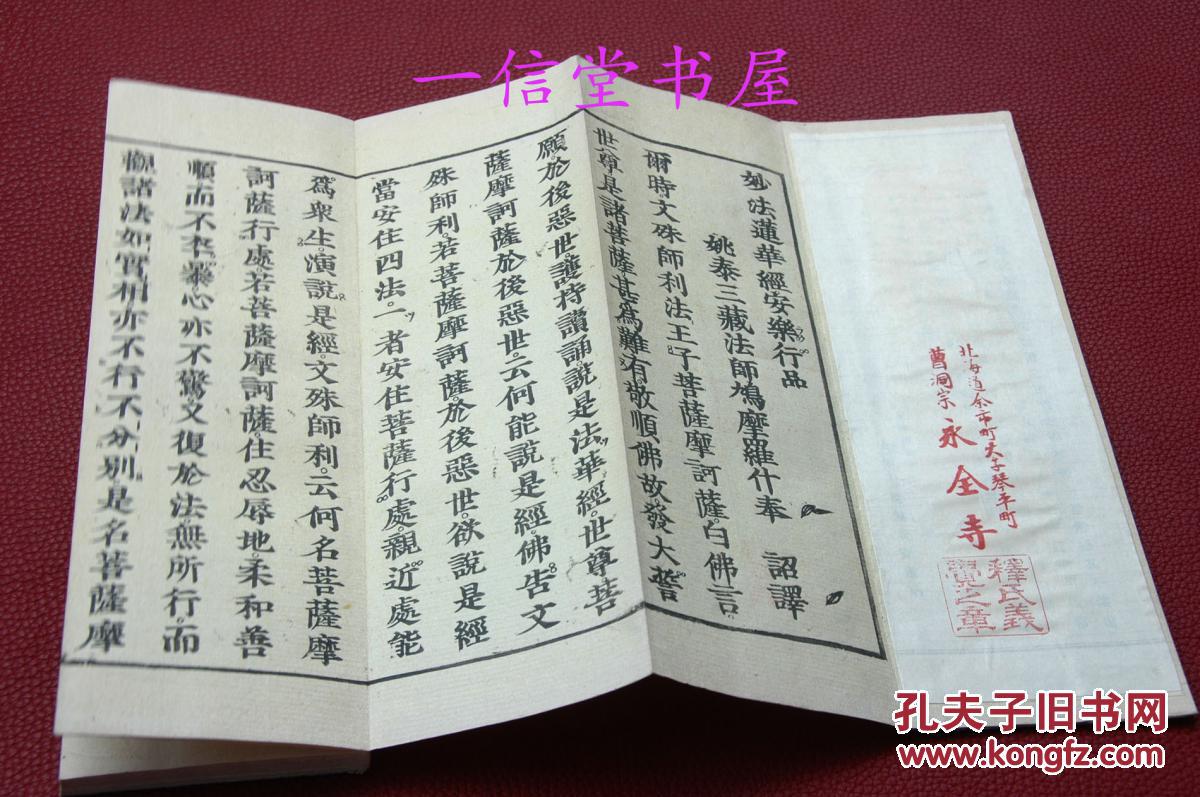 一信堂书屋
北海道余市町大字琴平町
曹洞宗 永全寺
釋氏義
覺之章
妙法蓮華經安樂行品
姚秦三藏法師鳩摩羅什奉 詔譯
爾時文殊師利法王子菩薩摩訶薩白佛言
世尊是諸菩薩甚爲難有敬順佛故發大誓
願於後惡世護持讀誦說是法華經世尊菩
薩摩訶薩於後惡世云何能說是經佛告文
殊師利若菩薩摩訶薩於後惡世欲說是經
當安住四法一者安住菩薩行處親近處能
爲衆生演說是經文殊師利云何名菩薩摩
訶薩行處若菩薩摩訶薩住忍辱地柔和善
順而不卒暴心亦不驚又復於法無所行而
觀諸法如實相亦不行不分別是名菩薩摩
孔夫子旧书网
www.kongfz.com